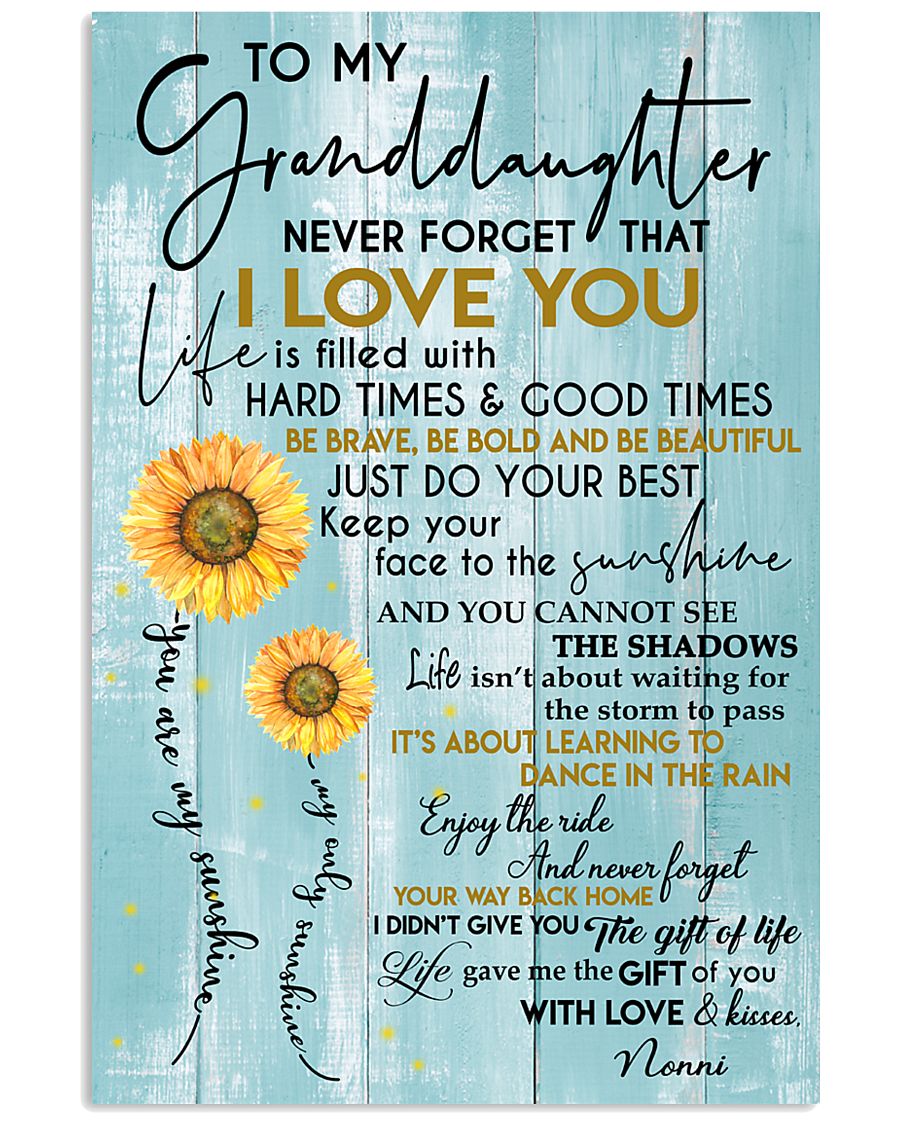 TO MY
Granddaughter
NEVER FORGET THAT
I LOVE YOU
Life is filled with
HARD TIMES & GOOD TIMES
BE BRAVE, BE BOLD AND BE BEAUTIFUL
JUST DO YOUR BEST
Keep your
face to the sunshine
AND YOU CANNOT SEE
THE SHADOWS
Life isn't about waiting for
the storm to pass
IT'S ABOUT LEARNING TO
DANCE IN THE RAIN
Enjoy the ride
And never forget
YOUR WAY BACK HOME
I DIDN'T GIVE YOU The gift of life
Life gave me the GIFT of you
WITH LOVE & kisses,
Nonni
you are my sunshine
my only sunshine